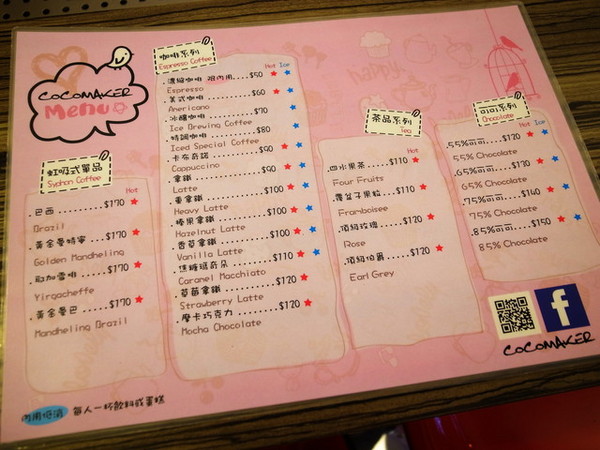 COCOMAKER
Menu
虹吸式單品
Syphon Coffee
Hot
巴西 ........ $170 ★
Brazil
黃金曼特寧 ... $170 ★
Golden Mandheling
耶加雪啡 ..... $170 ★
Yirgacheffe
黃金曼巴 ..... $170 ★
Mandheling Brazil
咖啡系列
Espresso Coffee
Hot Ice
濃縮咖啡 限內用 .... $50 ★ ★
Espresso
美式咖啡 ........ $60 ★ ★
Americano
冰釀咖啡 ........ $70 ★
Ice Brewing Coffee
特調咖啡 ........ $80 ★
Iced Special Coffee
卡布奇諾 ........ $90 ★ ★
Cappuccino
拿鐵 ........ $90 ★ ★
Latte
重拿鐵 ........ $100 ★ ★
Heavy Latte
榛果拿鐵 ........ $100 ★ ★
Hazelnut Latte
香草拿鐵 ........ $100 ★ ★
Vanilla Latte
焦糖瑪奇朵 ...... $110 ★ ★
Caramel Macchiato
草莓拿鐵 ........ $120 ★
Strawberry Latte
摩卡巧克力 ...... $120 ★
Mocha Chocolate
茶品系列
Tea
Hot
四水果茶 ...... $110 ★
Four Fruits
覆盆子果粒 .... $110 ★
Framboisee
頂級玫瑰 ...... $120 ★
Rose
頂級伯爵 ...... $120 ★
Earl Grey
可可系列
Chocolate
Hot Ice
55%可可 ...... $120 ★ ★
55% Chocolate
65%可可 ...... $130 ★ ★
65% Chocolate
75%可可 ...... $140 ★ ★
75% Chocolate
85%可可 ...... $150 ★ ★
85% Chocolate
f
COCOMAKER
內用低消 每人一杯飲料或蛋糕